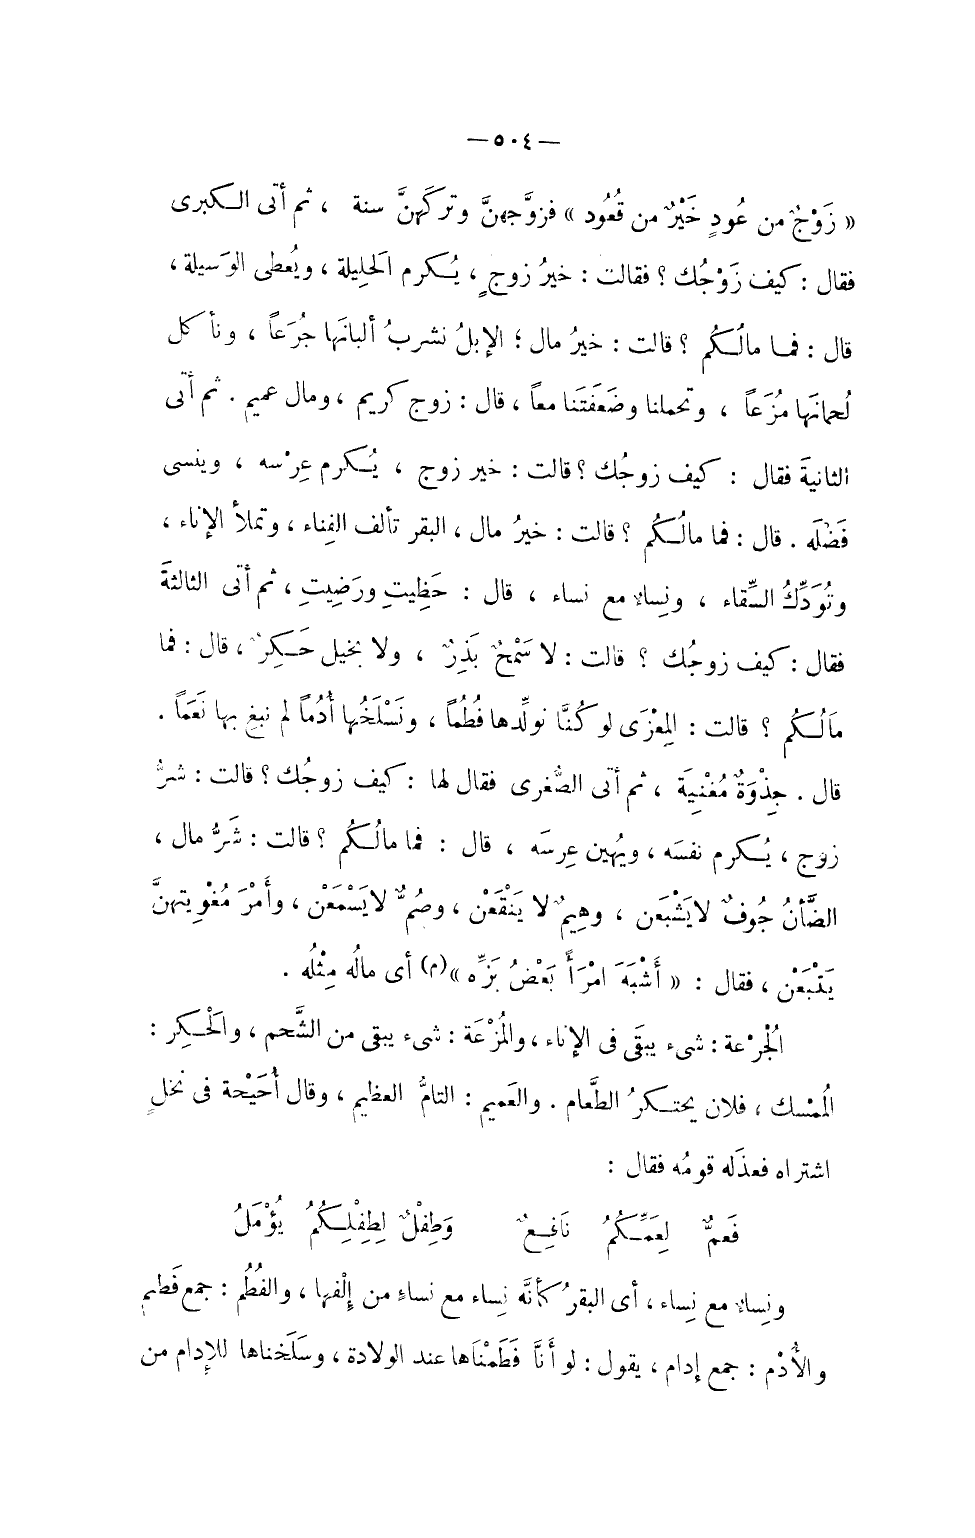 — ٥٠٤ —
« زَوْجٌ من عُودٍ خَيْرٌ من قُعُود » فزوَّجهنَّ وتركَهنَّ سنة ، ثم أتى الكبرى
فقال : كيف زَوْجُك ؟ فقالت : خيرُ زوجٍ ، يُكرم الحَلِيلة ، ويُعطى الوَسيلة ،
قال : فما مالُكُم ؟ قالت : خيرُ مال ؛ الإبلُ نشربُ ألبانَها جُرَعاً ، ونأكل
لُحمانَها مُزَعاً ، وتحملنا وضَعَفَتَنا معاً ، قال : زوج كريم ، ومال عميم . ثم أتى
الثانيةَ فقال : كيف زوجُك ؟ قالت : خير زوج ، يُكرم عِرْسه ، وينسى
فَضْلَه . قال : فما مالُكُم ؟ قالت : خيرُ مال ، البقر تألف الفِناء ، وتملأ الإناء ،
وتُوَدِّكُ السِّقاء ، ونِساء مع نساء ، قال : حَظِيتِ ورَضِيتِ ، ثم أتى الثالثةَ
فقال : كيف زوجُك ؟ قالت : لا سَمْحٌ بَذِرٌ ، ولا بخيل حَكِرٌ ، قال : فما
مَالُكُم ؟ قالت : المِعْزَى لو كُنَّا نولِّدها فُطُماً ، ونَسْلَخُها أُدُماً لم نبغ بها نَعَماً .
قال . جِذْوَةٌ مُغْنِيَة ، ثم أتى الصُّغرى فقال لها : كيف زوجُك ؟ قالت : شرُّ
زوج ، يُكرم نفسَه ، ويُهين عِرسَه ، قال : فما مالُكُم ؟ قالت : شَرُّ مال ،
الضَّأنُ جُوفٌ لا يَشْبَعن ، وهِيمٌ لا يَنْقَعْن ، وصُمٌّ لا يَسْمَعْن ، وأمْرَ مُغْوِيتهنَّ
يَتْبَعْن ، فقال : « أَشْبَهَ امْرَأً بَعْضُ بَزِّه »(م) أى مالُه مِثْلُه .
الجُرْعة : شىء يبقَى فى الإناء ، والمُزْعَة : شىء يبقى من الشَّحم ، والحَكِر :
المُمْسك ، فلان يحتكرُ الطَّعام . والعَميم : التامُّ العظيم ، وقال أُحَيْحة فى نخلٍ
اشتراه فعذَله قومُه فقال :
فَعمٌّ لِعَمِّكُمُ نَافِعٌ وَطِفْلٌ لِطِفْلِكُمُ يُؤْمَلُ
ونِساء مع نِساء ، أى البقرُ كأنَّه نِساء مع نساءٍ من إلْفها ، والفُطُم : جمع فَطيم
والأُدْم : جمع إدام ، يقول : لو أنَّا فَطَمْنَاها عند الولادة ، وسَلَخناها للإدام من